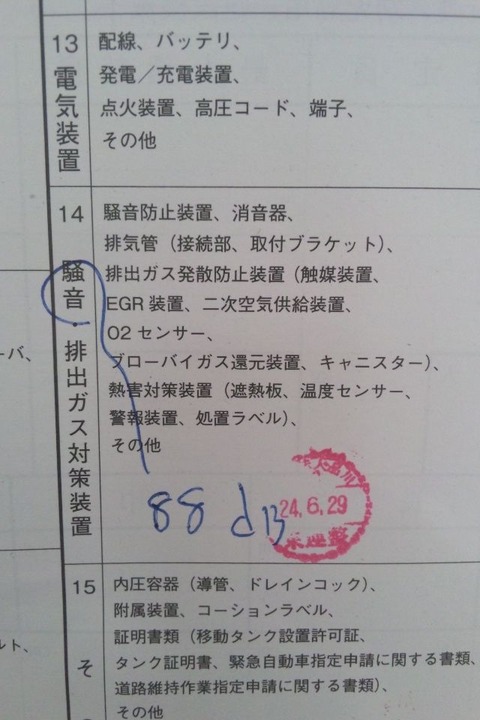 13
電気装置
配線、バッテリ、
発電／充電装置、
点火装置、高圧コード、端子、
その他
14
騒音・排出ガス対策装置
騒音防止装置、消音器、
排気管（接続部、取付ブラケット）、
排出ガス発散防止装置（触媒装置、
EGR 装置、二次空気供給装置、
O2 センサー、
ブローバイガス還元装置、キャニスター）、
熱害対策装置（遮熱板、温度センサー、
警報装置、処置ラベル）、
その他
88 dB
24.6.29
15
そ
内圧容器（導管、ドレインコック）、
附属装置、コーションラベル、
証明書類（移動タンク設置許可証、
タンク証明書、緊急自動車指定申請に関する書類、
道路維持作業指定申請に関する書類）、
その他